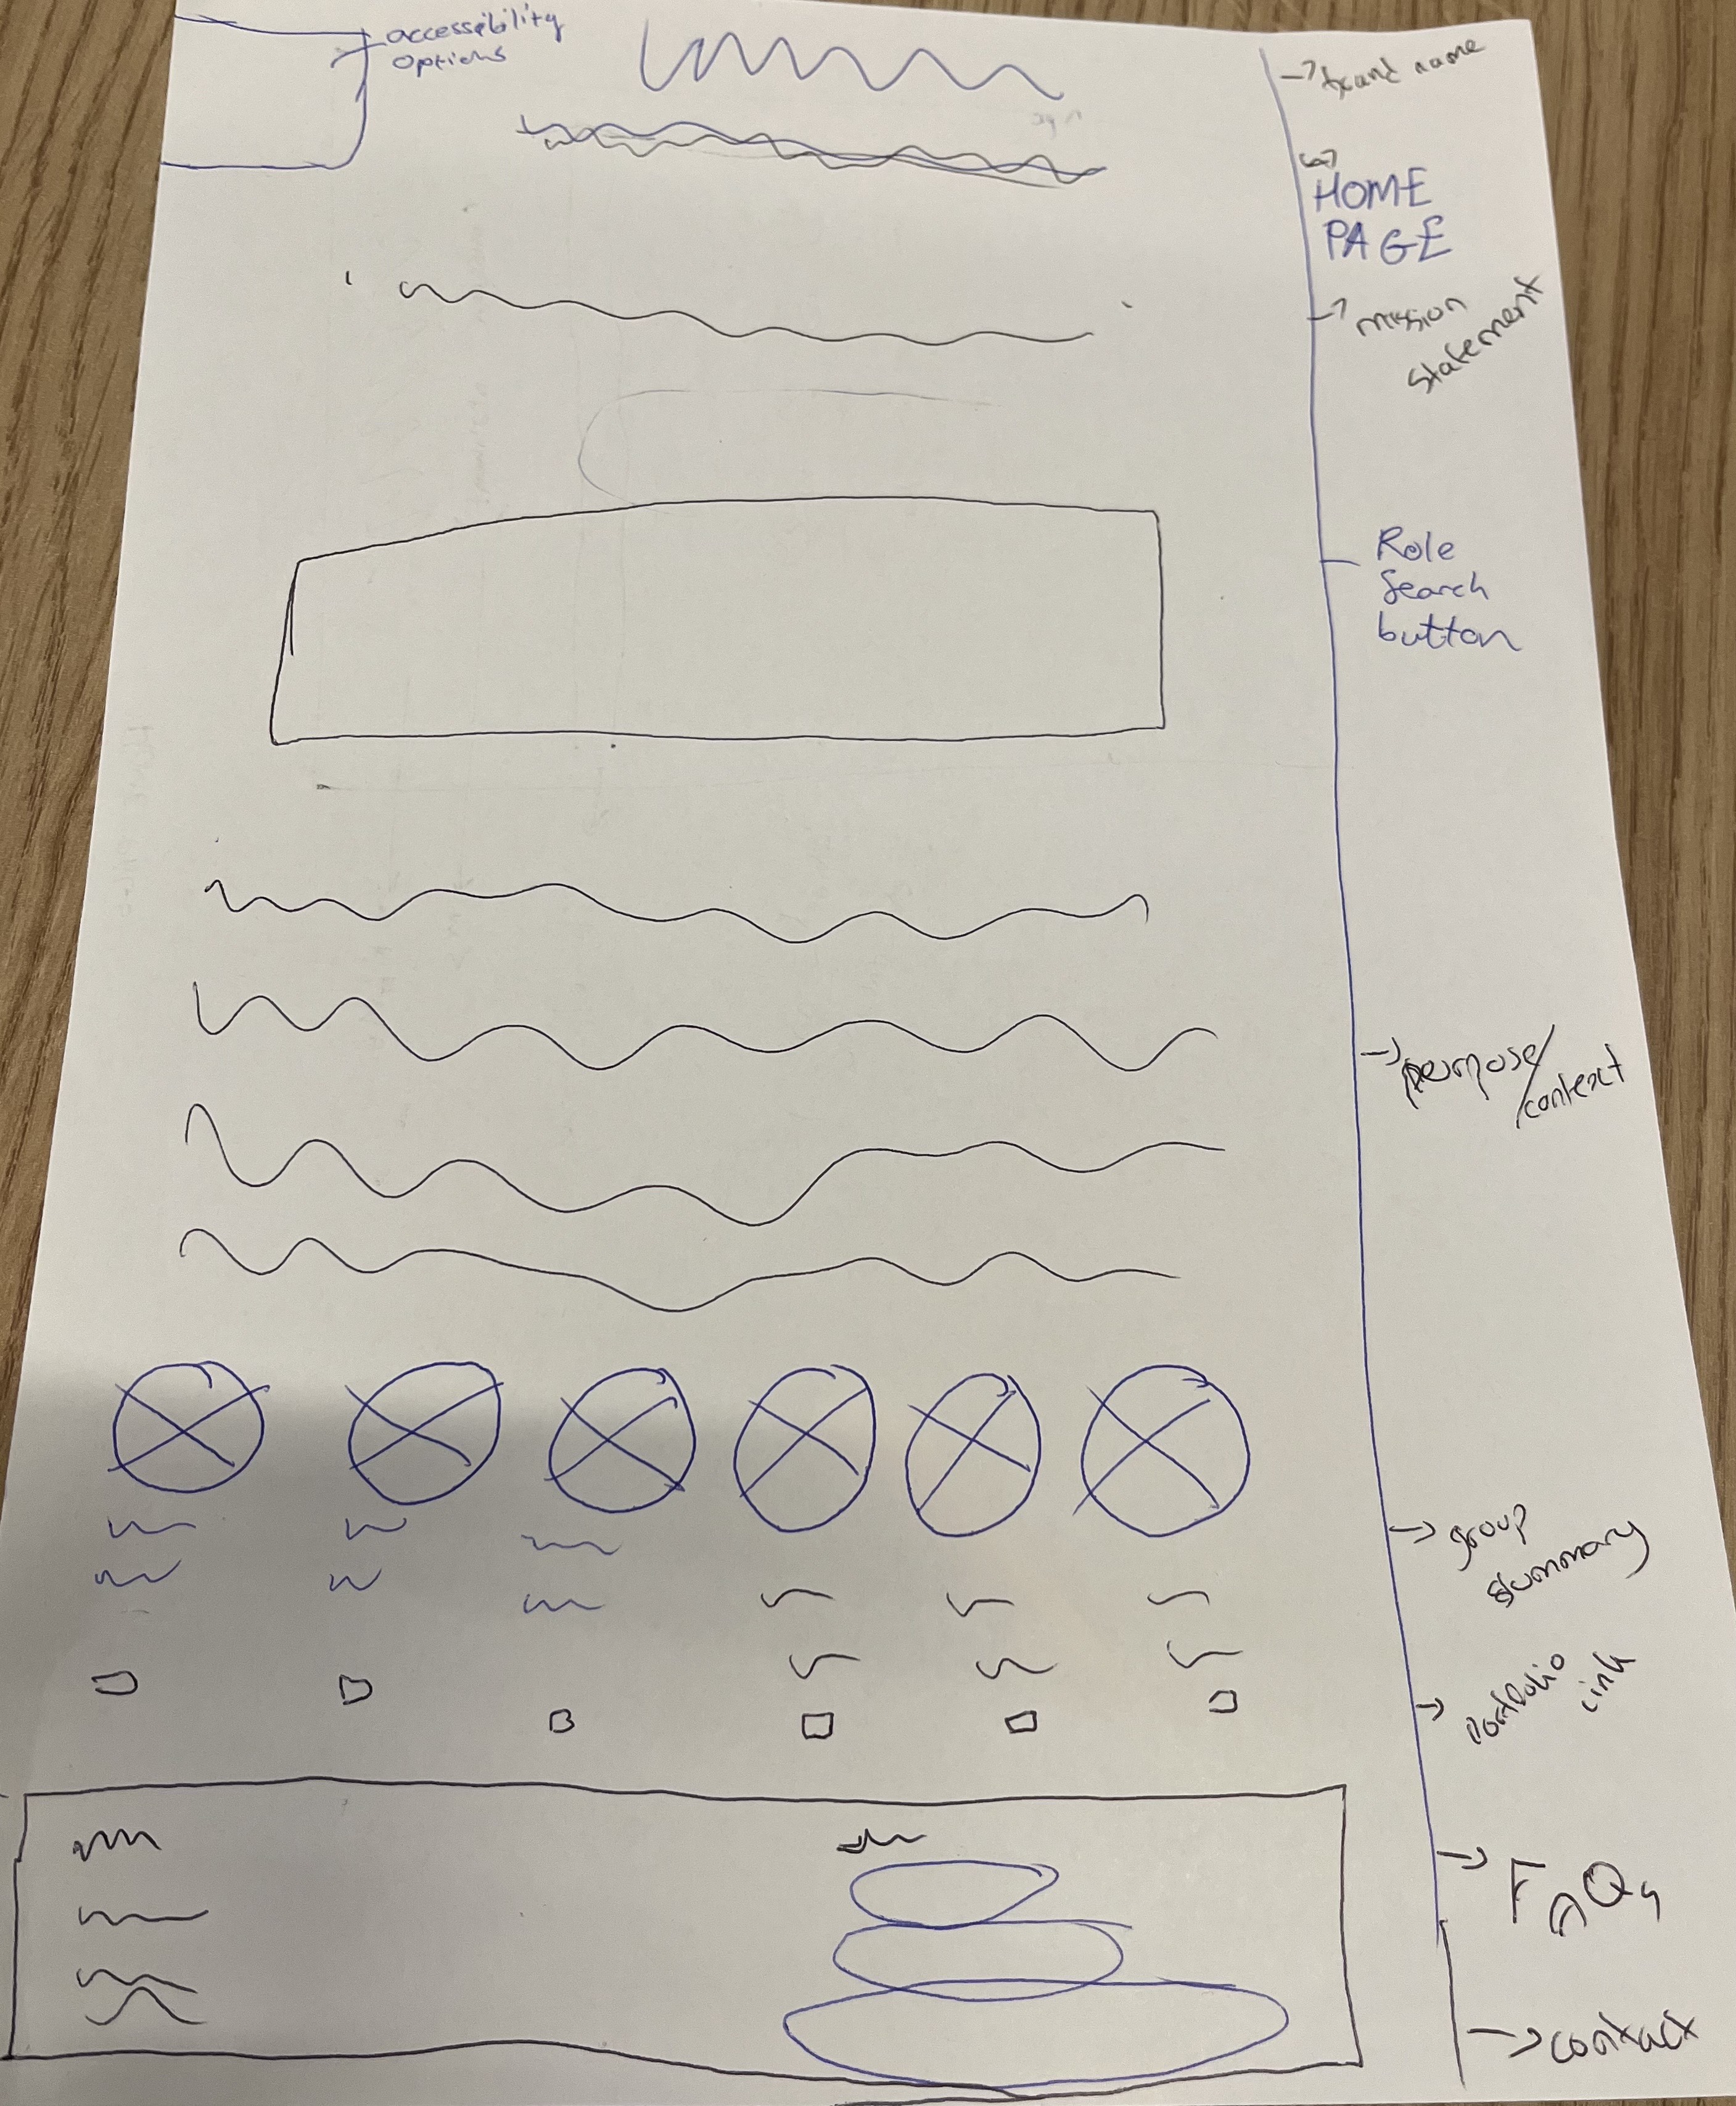 accessibility
options
→ brand name
HOME
PAGE
→ mission
statement
Role
Search
button
→ purpose/
context
→ group
summary
→ Portfolio
link
→ FAQs
→ contact